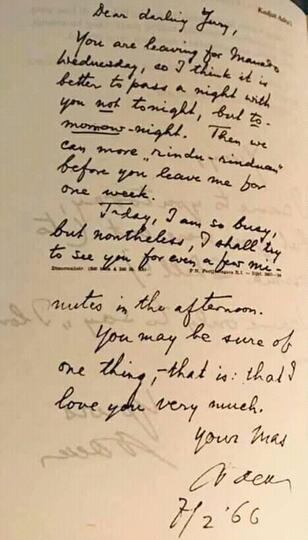 Dear darling Yury,
You are leaving for Manado
Wednesday, so I think it is
better to pass a night with
you not tonight, but to-
morrow-night. Then we
can more "rindu-rinduan"
before you leave me for
one week.
Today, I am so busy,
but nonetheless, I shall try
to see you for even a few mi-
nutes in the afternoon.
You may be sure of
one thing, - that is: that I
love you very much.
Your Mas
7/2 '66